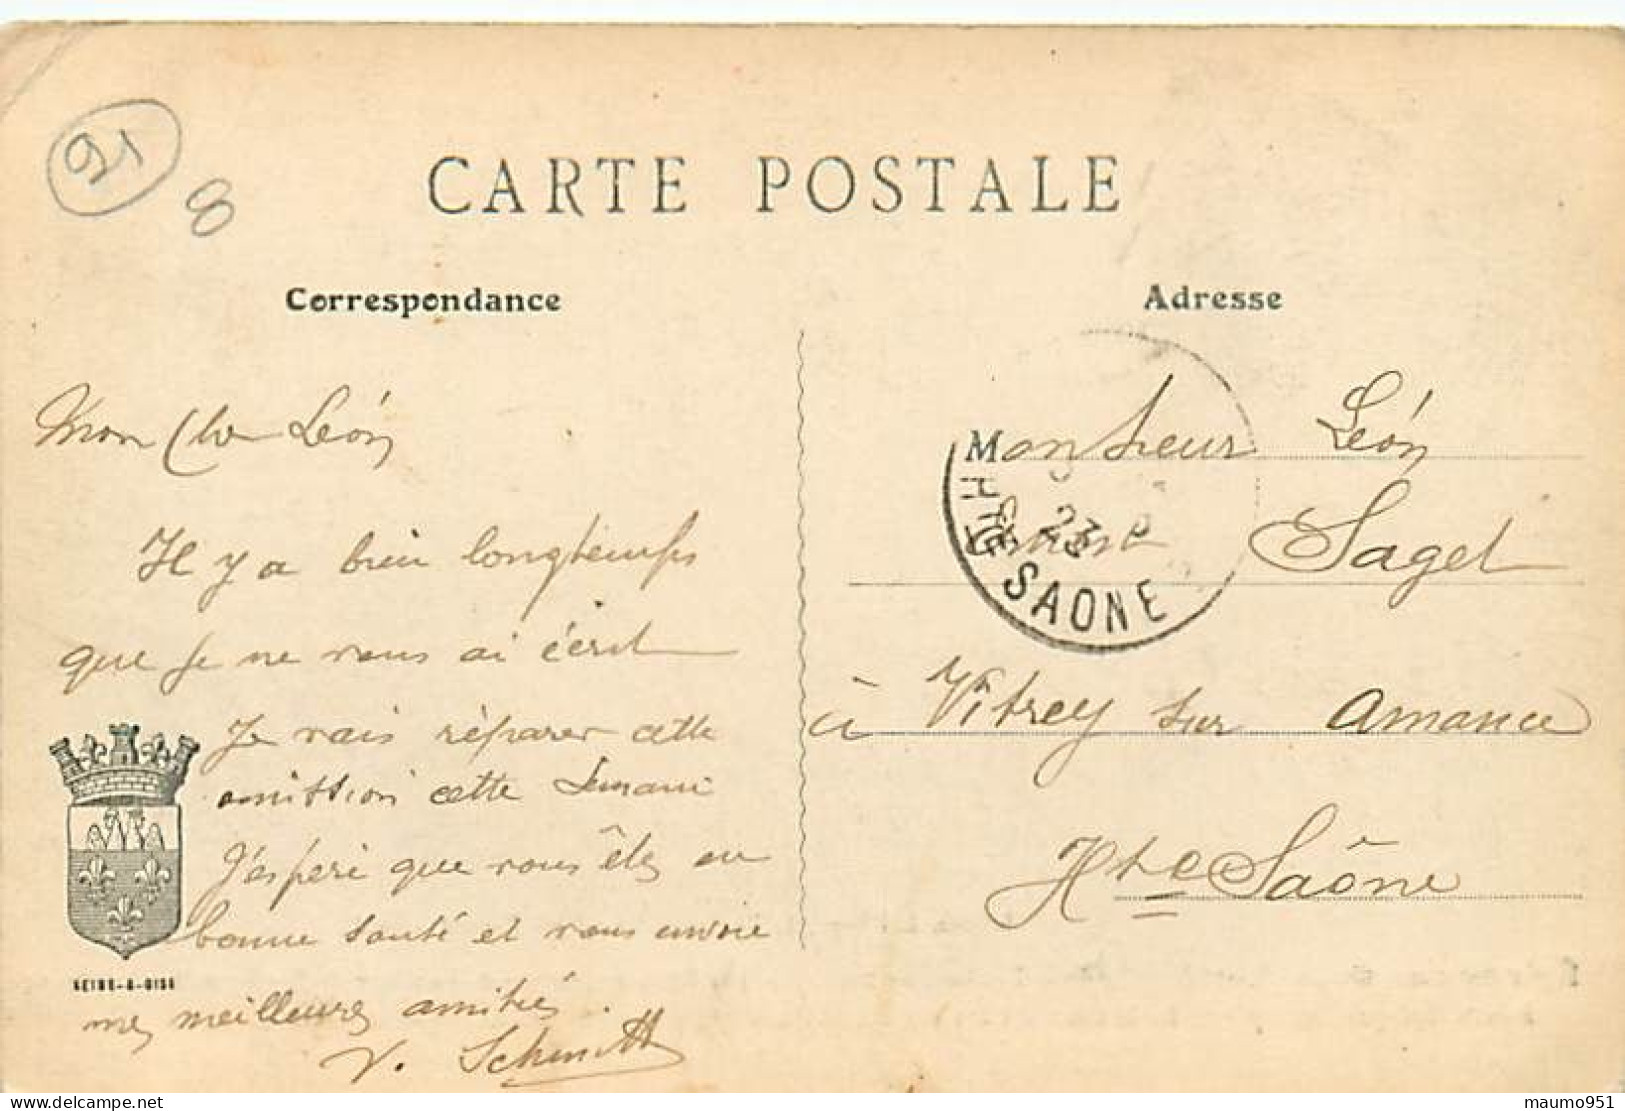 91
8
CARTE POSTALE
Correspondance
Mon Cher Léon
Il y a bien longtemps
que je ne vous ai écrit
Je vais réparer cette
omission cette semaine
J'espère que vous êtes en
bonne santé et vous envoie
mes meilleures amitiés.
V. Schmitt
SEINE-&-OISE
Adresse
Monsieur Léon
Sagel
à Vitrey sur Amance
Hte Saône
HTE SAONE
23
delcampe.net
maumo951